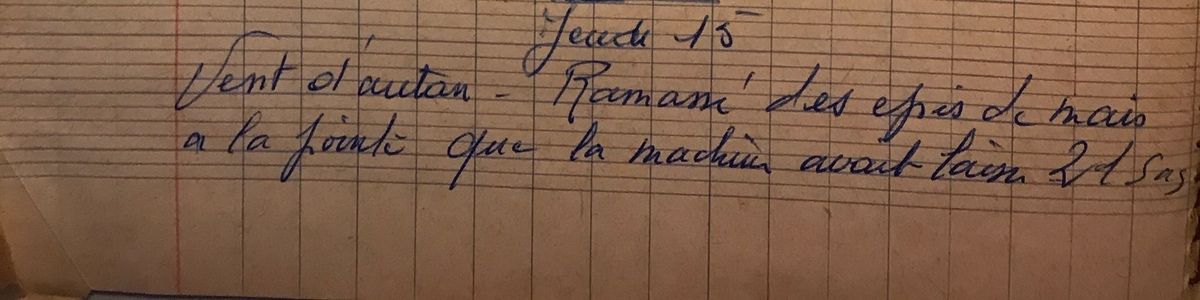 Jeudi 15
Vent d'autan - Ramassé des epis de mais
a la pointe que la machine avait laissé 21 sacs